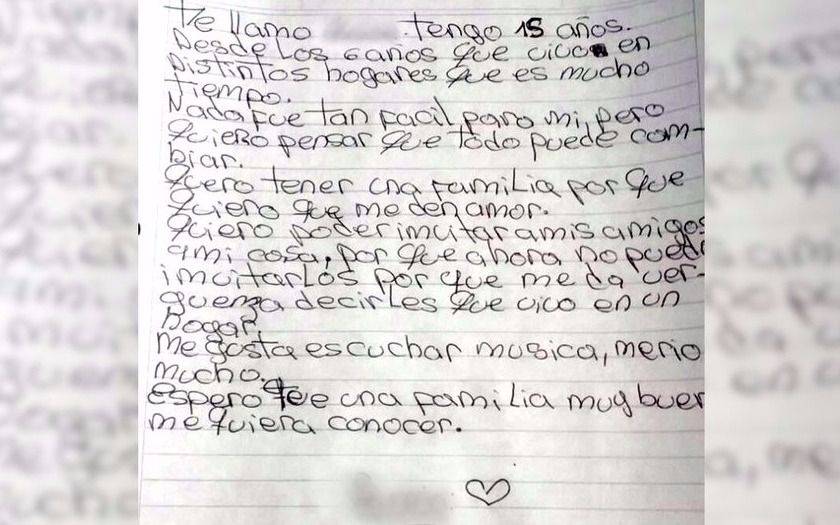 Me llamo tengo 15 años.
Desde los 6 años que vivo en
Distintos hogares que es mucho
tiempo.
Nada fue tan facil para mi, pero
quiero pensar que todo puede cam-
biar.
Quero tener una familia por que
quiero que me den amor.
Quiero poder invitar a mis amigos
a mi casa, por que ahora no puedo
invitarlos por que me da ver-
guenza decirles que vivo en un
hogar.
me gusta escuchar musica, me rio
mucho.
espero que una familia muy buen
me quiera conocer.